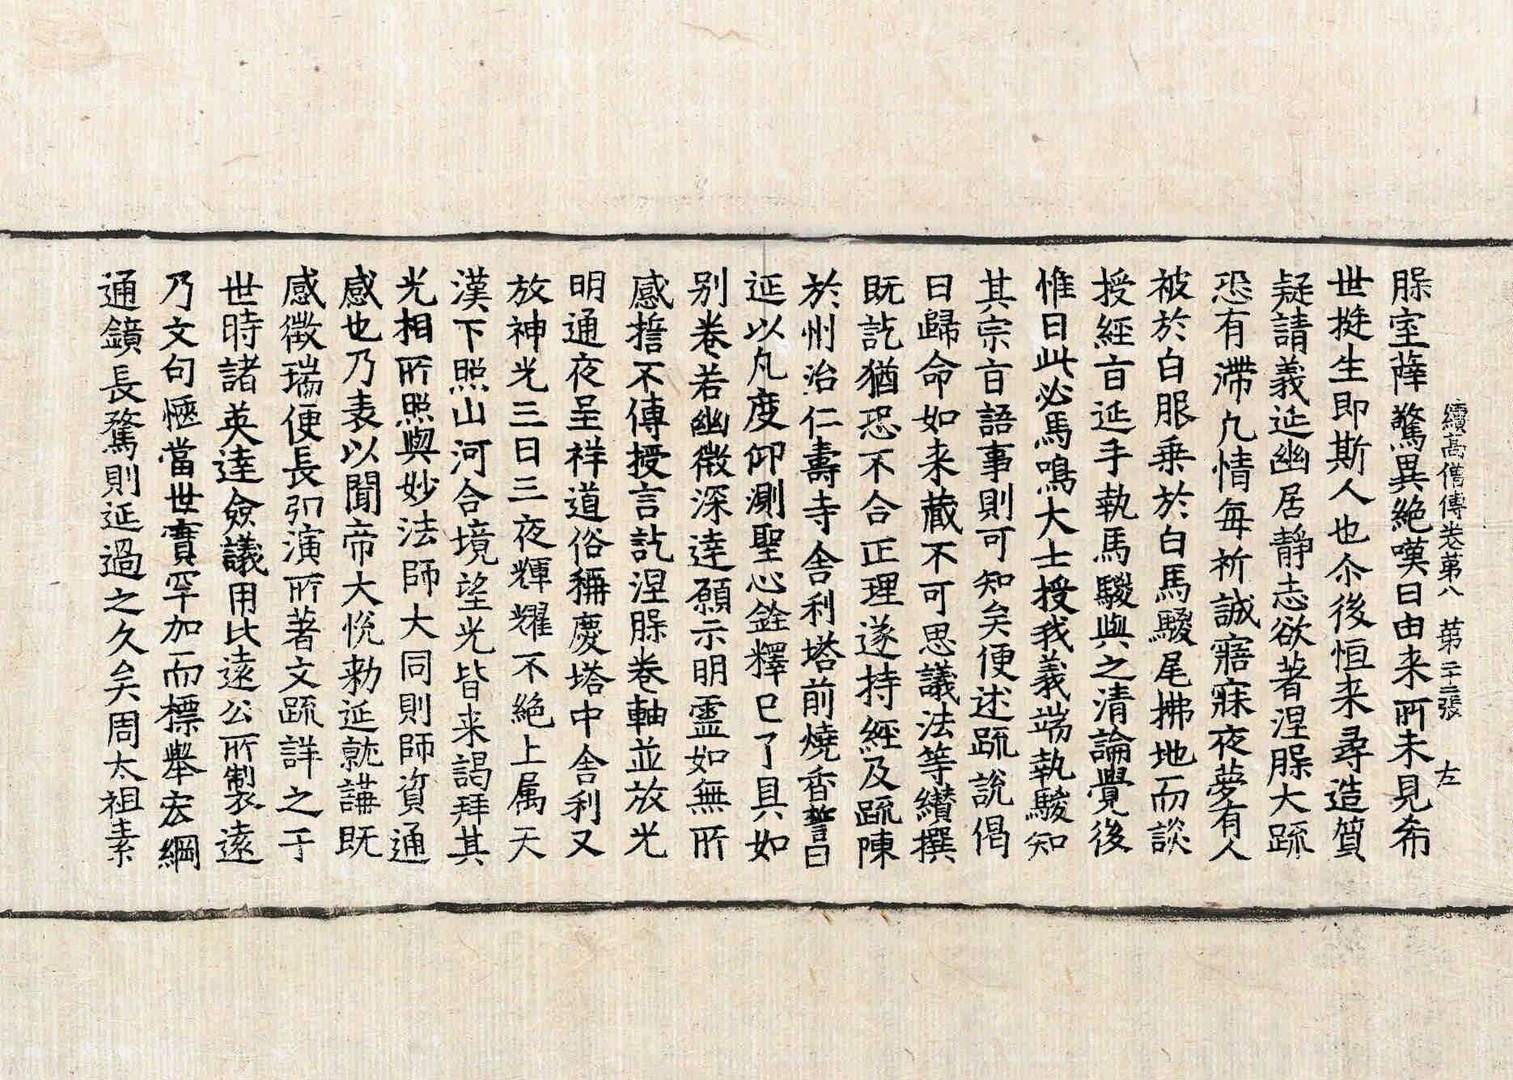 續高僧傳卷第八　苐二十二張　左
脲室薛驚異絶嘆曰由来所未見希
世挺生即斯人也尒後恒来尋造質
疑請義延幽居靜志欲著涅脲大䟽
恐有滯凢情每祈誠寤寐夜夢有人
被於白服乗於白馬騣尾拂地而談
授經㫖延手執馬騣與之清論覺後
惟曰此必馬鳴大士授我義端執騣知
其宗㫖語事則可知矣便述䟽說偈
曰歸命如来藏不可思議法等纉撰
既訖猶恐不合正理遂持經及䟽陳
於州治仁壽寺舎利塔前燒香誓曰
延以凢度仰測聖心銓釋已了具如
别卷若幽微深逹願示明靈如無所
感誓不傳授言訖涅脲卷軸並放光
明通夜呈祥道俗稱慶塔中舎利又
放神光三日三夜輝耀不絶上属天
漢下照山河合境望光皆来謁拜其
光相所照與妙法師大同則師資通
感也乃表以聞帝大悦勑延就講既
感徵瑞便長弘演所著文䟽詳之于
世時諸英逹僉議用比遠公所製遠
乃文句愜當世實罕加而標舉宏綱
通鏡長騖則延過之久矣周太祖素